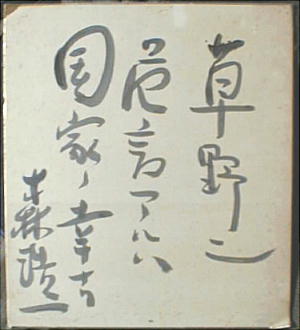 草野ニ
危言アルハ
国家ノ幸
森浩一